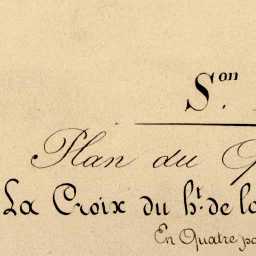 S.on
Plan du Q
La Croix du h.t de la
En Quatre pa